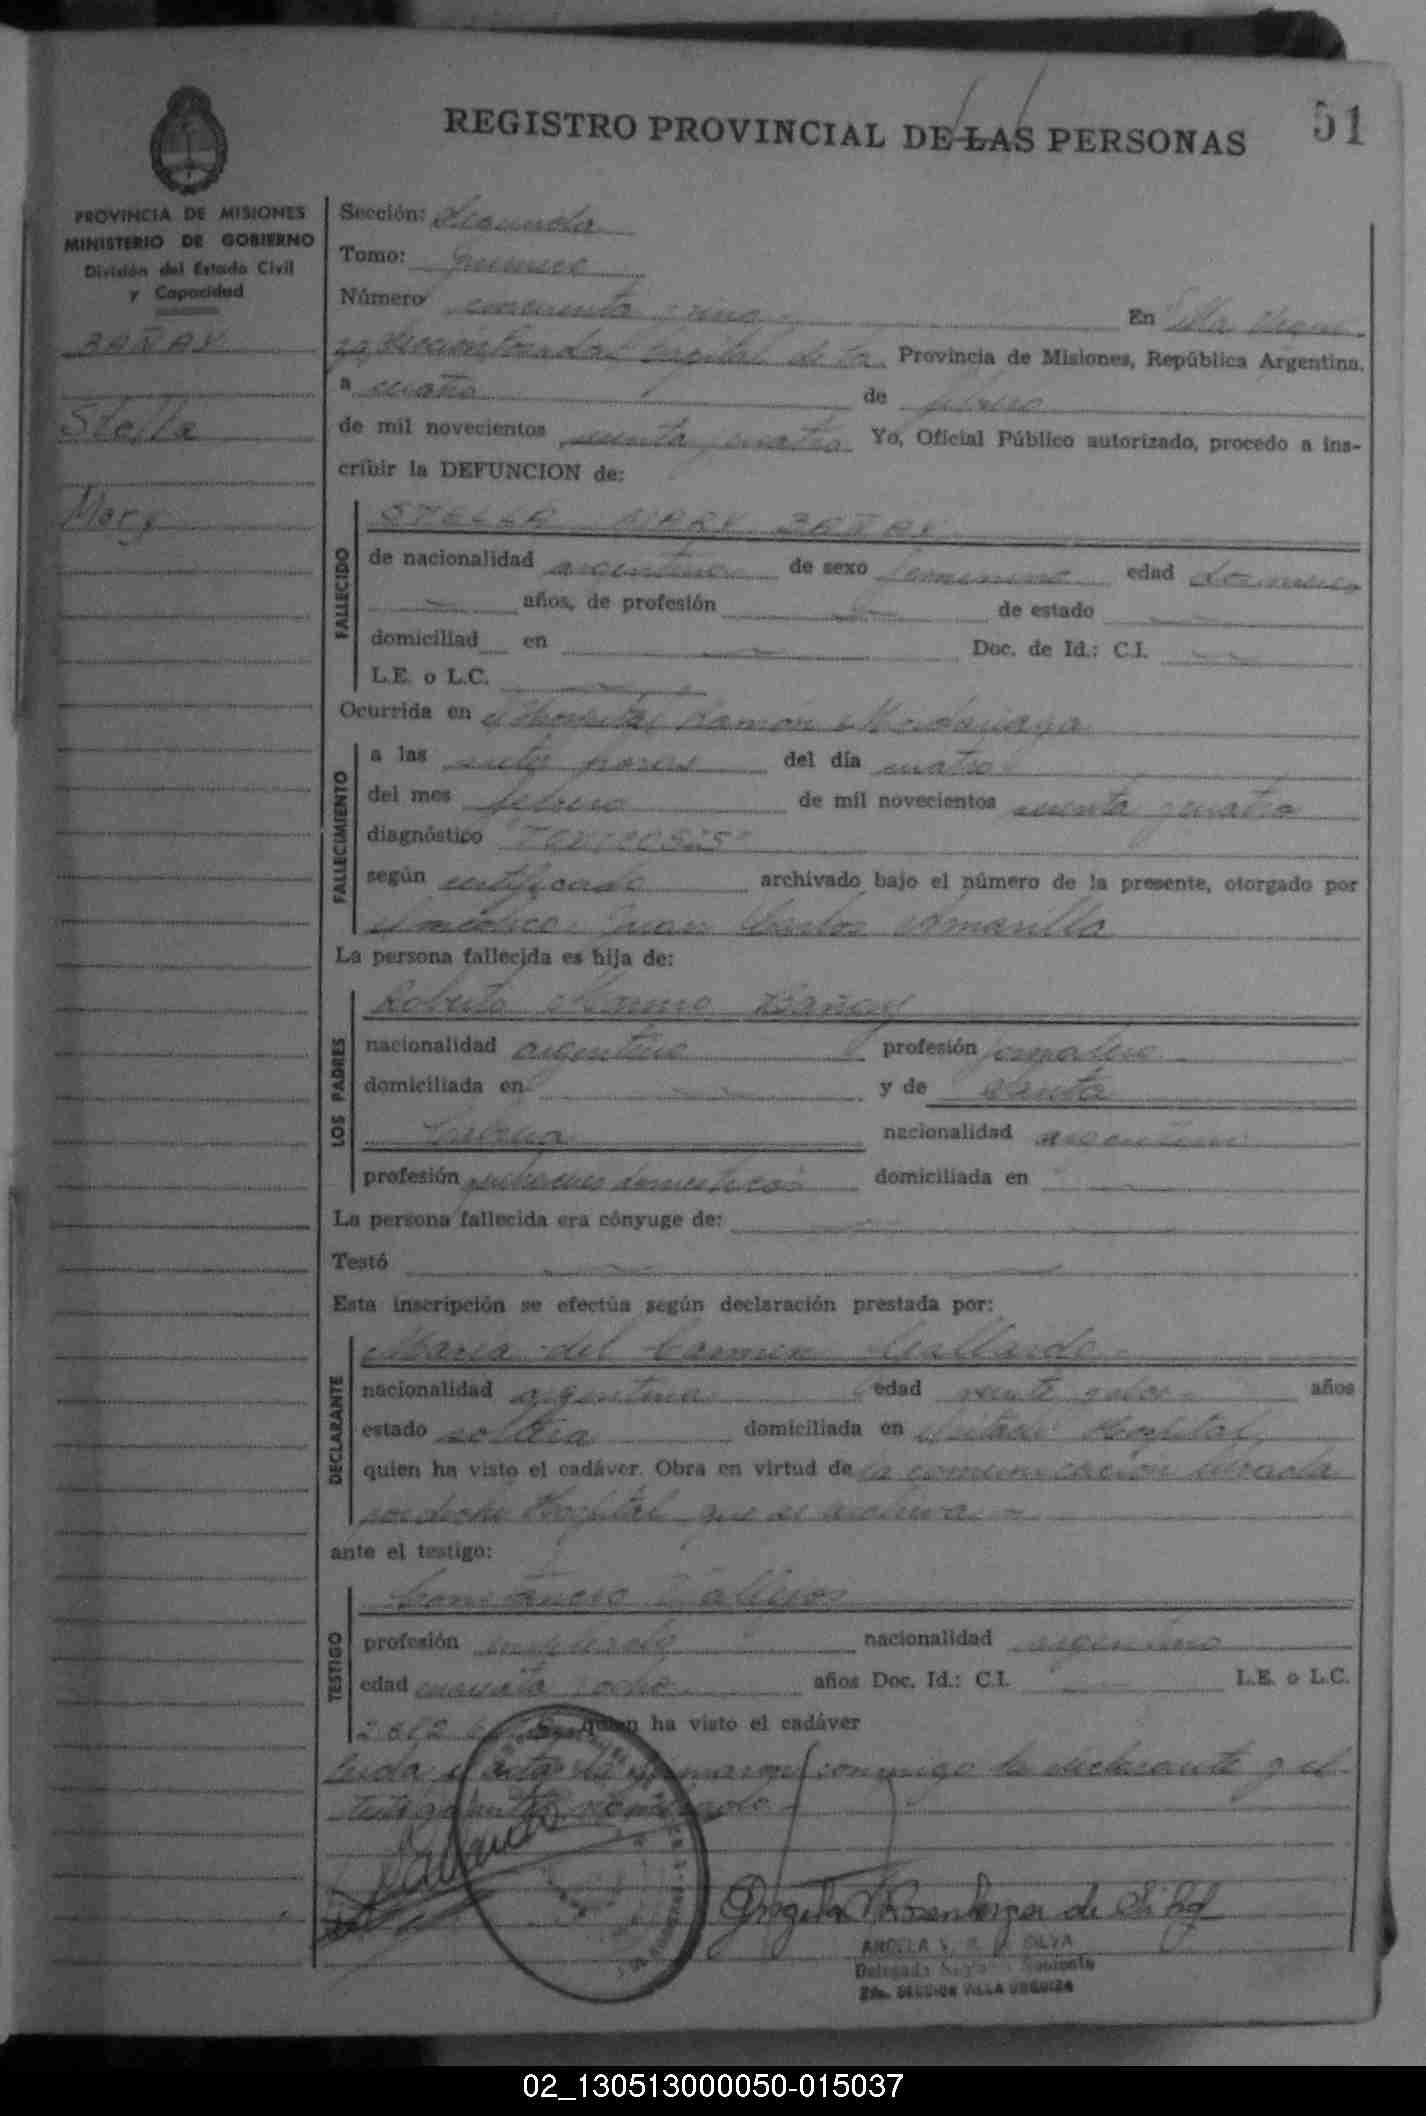 REGISTRO PROVINCIAL DE LAS PERSONAS 51
PROVINCIA DE MISIONES
MINISTERIO DE GOBIERNO
División del Estado Civil
y Capacidad
BAÑAY
Stella
Mary
Sección: Segunda
Tomo: Primero
Número cincuenta y uno En Villa Urqui-
za Capital de la Provincia de Misiones, República Argentina,
a cuatro de febrero
de mil novecientos setenta y cuatro Yo, Oficial Público autorizado, procedo a ins-
cribir la DEFUNCION de:
FALLECIDO
STELLA MARY BAÑAY
de nacionalidad argentina de sexo femenino edad
años, de profesión de estado
domiciliad en Doc. de Id.: C.I.
L.E. o L.C.
Ocurrida en el Hospital Ramón Madariaga
FALLECIMIENTO
a las siete horas del día cuatro
del mes febrero de mil novecientos setenta y cuatro
diagnóstico
según certificado archivado bajo el número de la presente, otorgado por
el médico: Juan Carlos Amarilla
La persona fallecida es hija de:
LOS PADRES
Roberto Bañay
nacionalidad argentino profesión jornalero
domiciliada en y de Santa
nacionalidad argentina
profesión quehaceres domésticos domiciliada en
La persona fallecida era cónyuge de:
Testó
Esta inscripción se efectúa según declaración prestada por:
DECLARANTE
María del Carmen Gallardo
nacionalidad argentina edad veinte y años
estado soltera domiciliada en citado Hospital
quien ha visto el cadáver. Obra en virtud de la comunicación librada
por dicho Hospital que se archiva.-
ante el testigo:
TESTIGO
Constancio Vallejos
profesión empleado nacionalidad argentino
edad cuarenta y ocho años Doc. Id.: C.I. L.E. o L.C.
quien ha visto el cadáver
Leida el acta la firmaron conmigo la declarante y el
testigo antes nombrado.-
ANGELA SILVA
Delegada
2da. SECCION VILLA URQUIZA
02_130513000050-015037